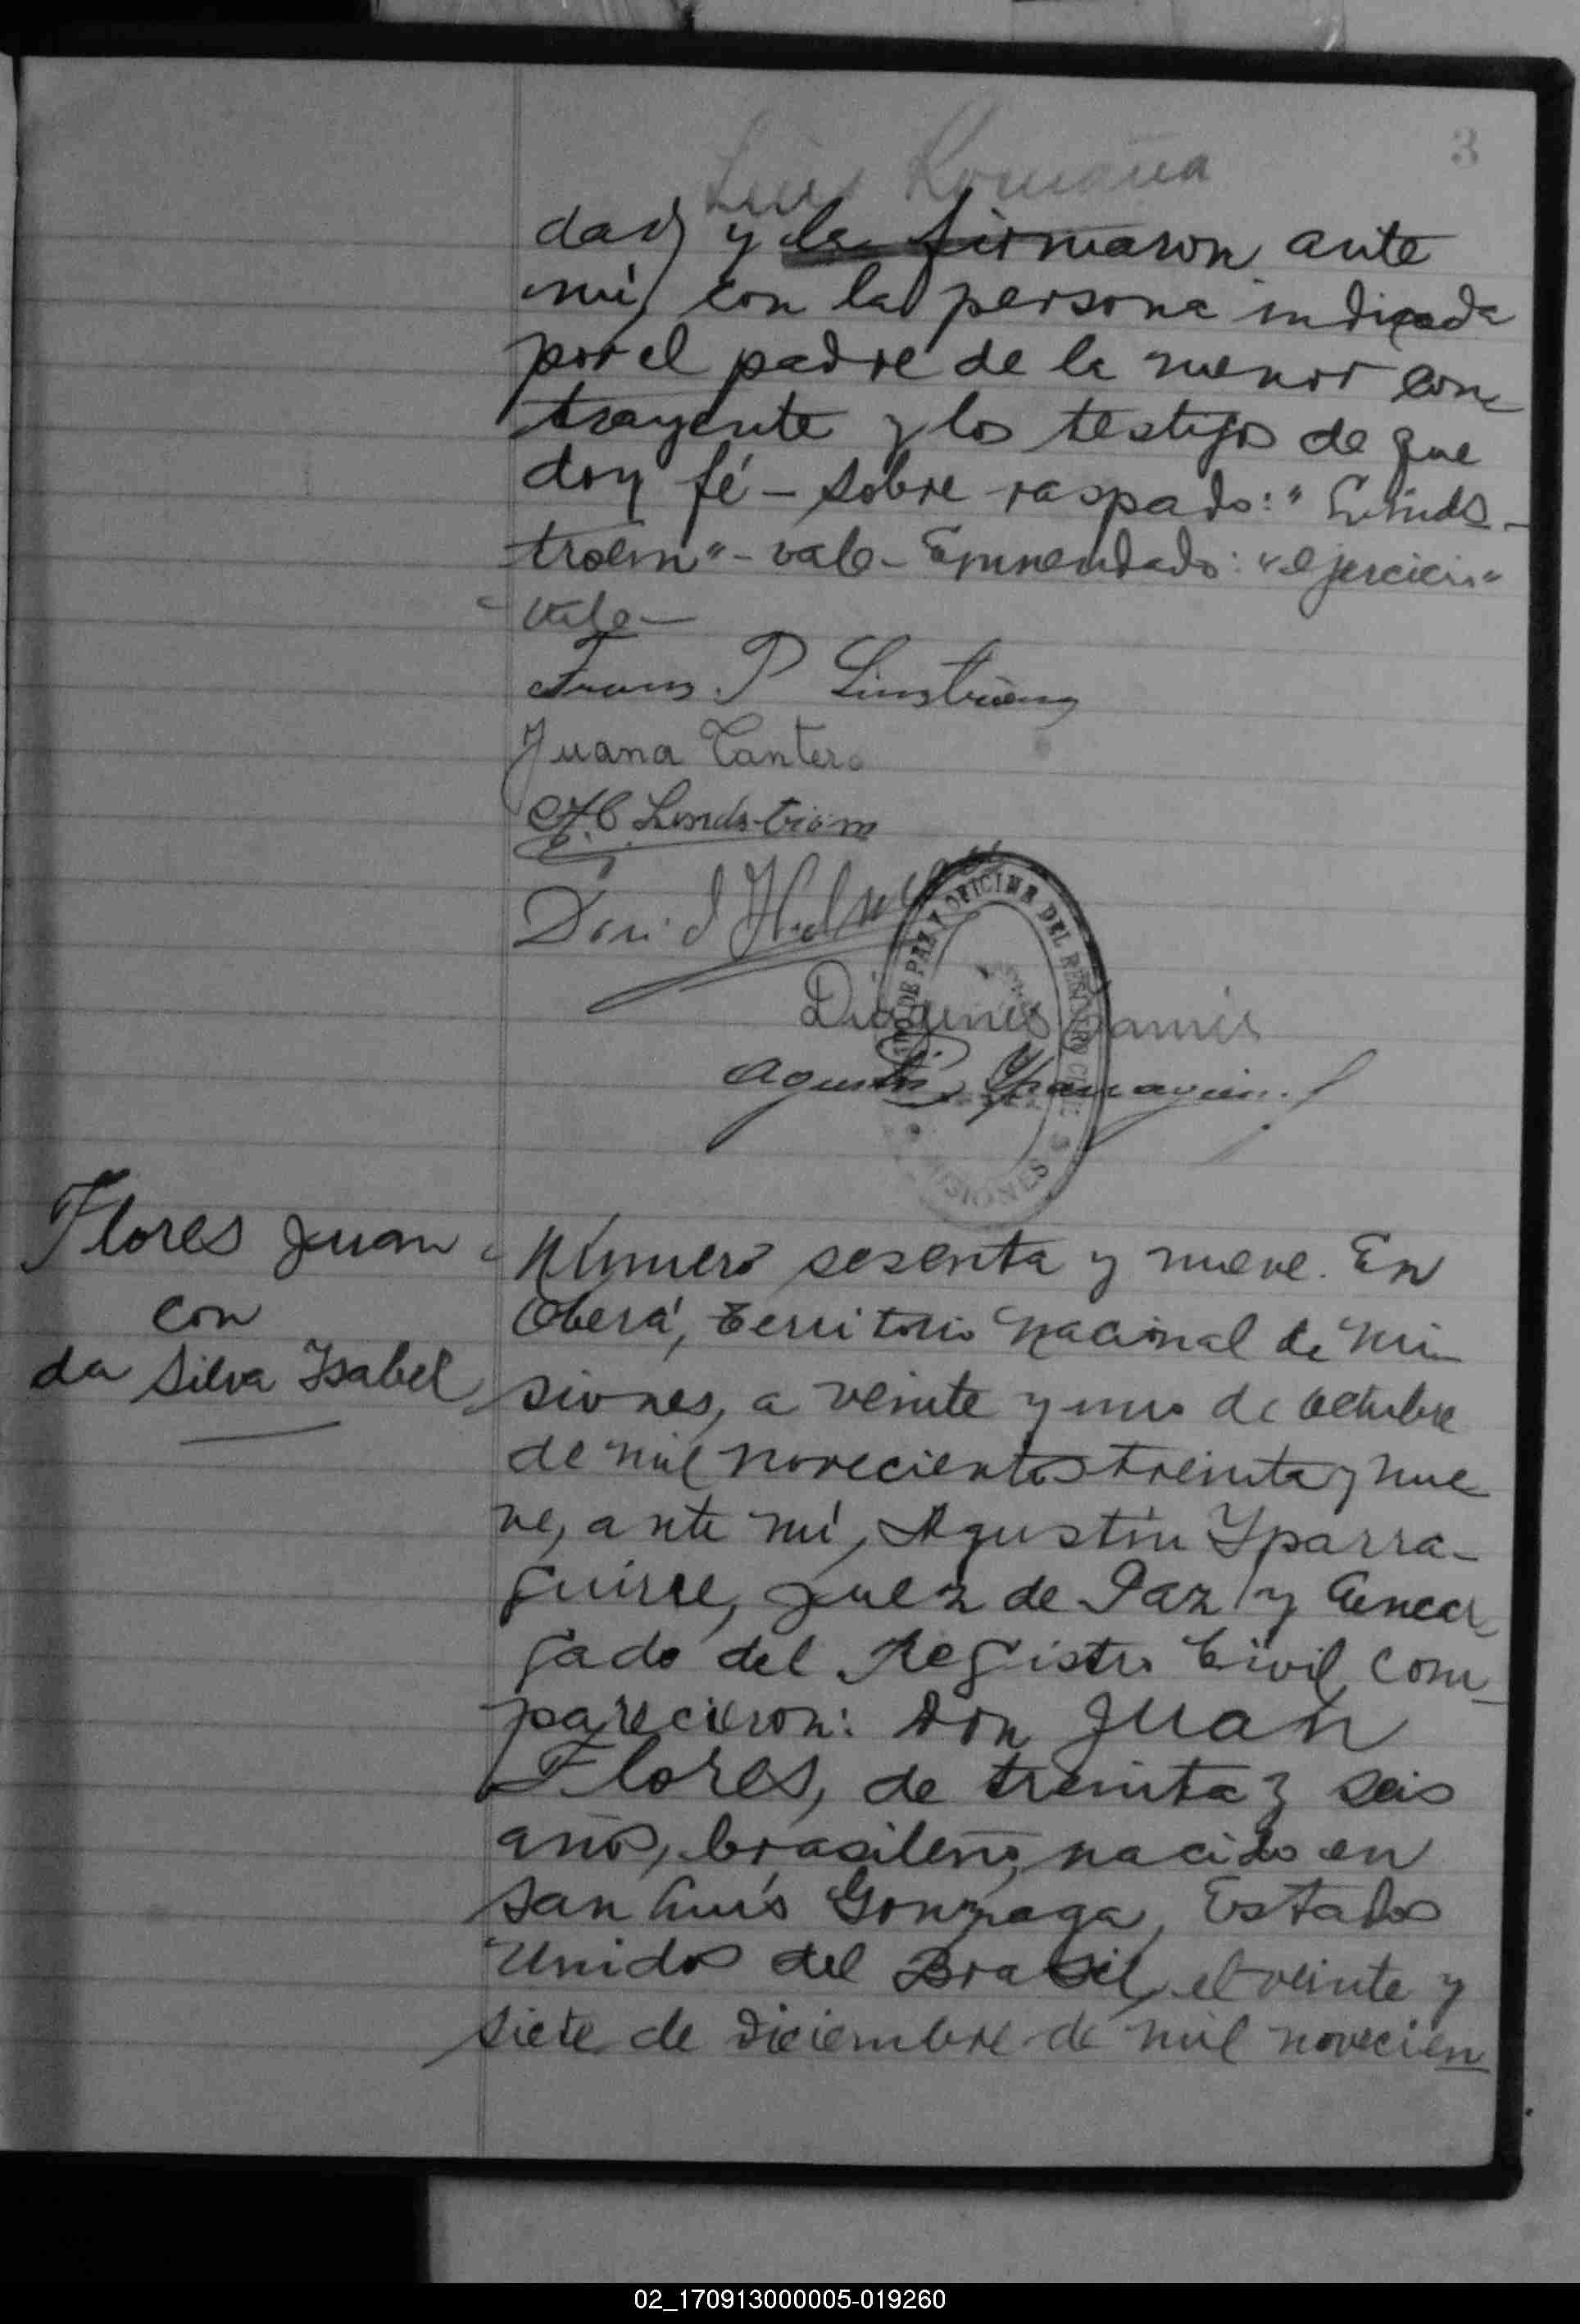 3
Luis Romaña
dad, y la firmaron ante
mi, con la persona indicada
por el padre de la menor con
trayente y los testigos de que
doy fé - sobre raspado: "Linds-
troem" - vale - Enmendado: "ejercicio"
vale -
Frans. P Linström
Juana Cantero
Lindström
David
Diógenes
Agustín Yparraguirre
DE PAZ Y OFICINA DEL REGISTRO CIVIL
MISIONES
Flores Juan
con
da Silva Isabel
Número sesenta y nueve. En
Oberá, territorio nacional de Mi-
siones, a veinte y uno de octubre
de mil novecientos treinta y nue
ve, ante mí, Agustín Yparra-
guirre, Juez de Paz y Encar
gado del Registro Civil, com-
parecieron: Don Juan
Flores, de treinta y seis
años, brasileño, nacido en
San Luis Gonzaga, Estados
Unidos del Brasil, el veinte y
siete de diciembre de mil novecien
02_170913000005-019260